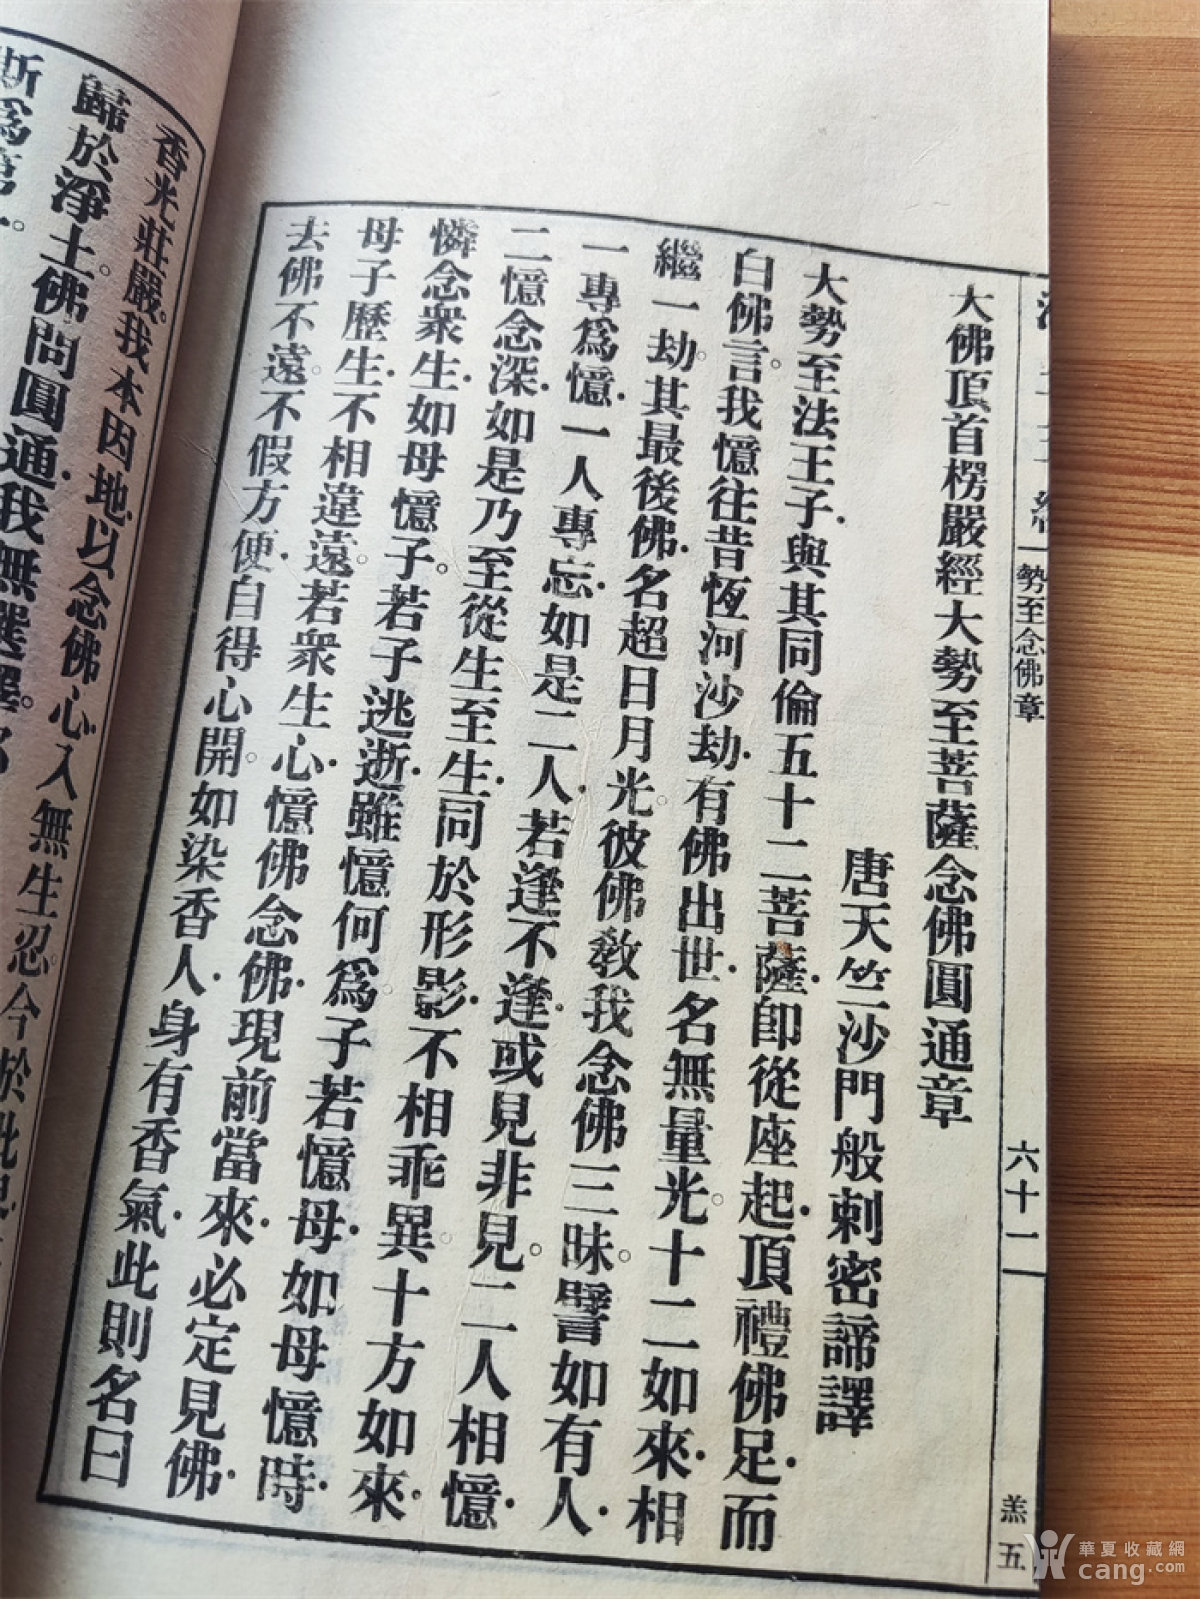 勢至念佛章
六十二
羔五
大佛頂首楞嚴經大勢至菩薩念佛圓通章
唐天竺沙門般剌密諦譯
大勢至法王子．與其同倫五十二菩薩．即從座起．頂禮佛足．而
白佛言。我憶往昔恆河沙劫．有佛出世．名無量光。十二如來．相
繼一劫。其最後佛．名超日月光。彼佛教我念佛三昧。譬如有人．
一專爲憶．一人專忘．如是二人．若逢不逢．或見非見。二人相憶．
二憶念深．如是乃至從生至生．同於形影．不相乖異。十方如來．
憐念衆生．如母憶子。若子逃逝．雖憶何爲。子若憶母．如母憶時．
母子歷生．不相違遠。若衆生心．憶佛念佛．現前當來．必定見佛．
去佛不遠。不假方便．自得心開。如染香人．身有香氣．此則名曰
香光莊嚴。我本因地．以念佛心．入無生忍。今於此
歸於淨土。佛問圓通．我無選擇。
斯爲第一。
華夏收藏網
cang.com